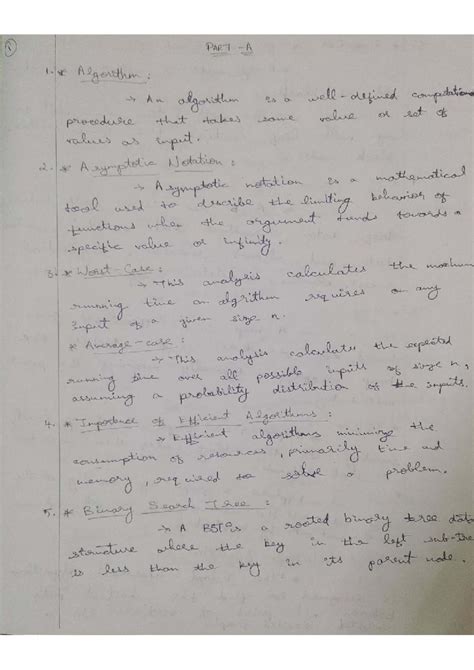 PART - A
1. * Algorithm :
→ An algorithm is a well-defined computational
procedure that takes some value or set of
values as input.
2. * Asymptotic Notation :
→ Asymptotic notation is a mathematical
tool used to describe the limiting behavior of
functions when the argument tends towards a
specific value or infinity.
3. * Worst-Case :
→ This analysis calculates the maximum
running time an algorithm requires on any
input of a given size n.
* Average-case :
→ This analysis calculates the expected
running time over all possible inputs of size n,
assuming a probability distribution of the inputs.
4. * Importance of Efficient Algorithms :
→ Efficient algorithms minimize the
consumption of resources, primarily time and
memory, required to solve a problem.
5. * Binary Search Tree :
→ A BST is a rooted binary tree data
structure where the key in the left sub-tree
is less than the key in its parent node.